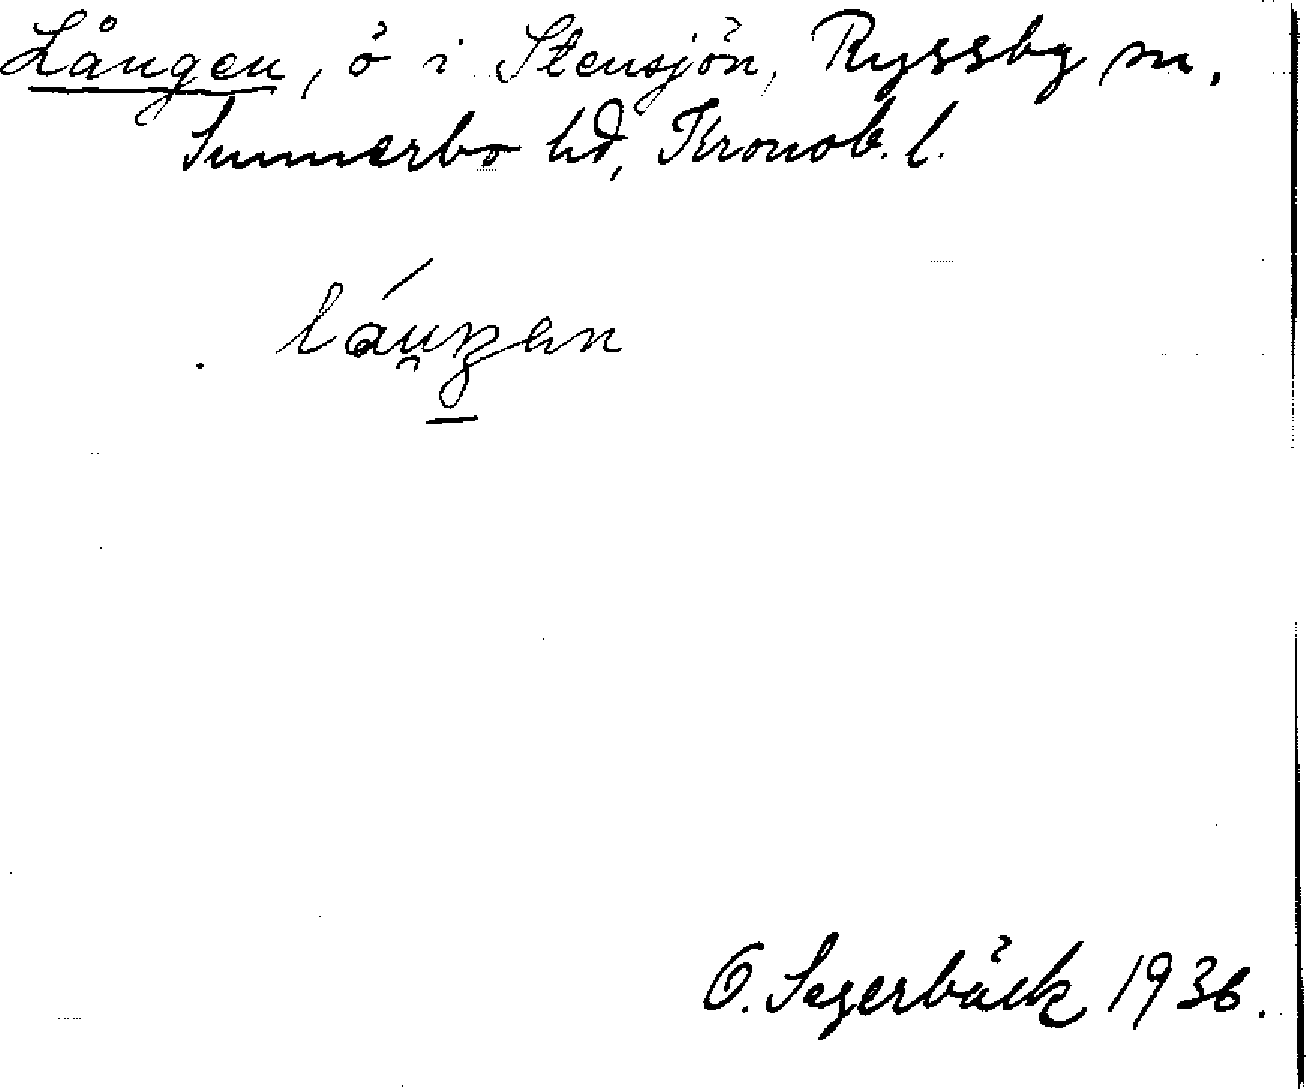 Lången, ö i Stensjön, Ryssby sn.
Sunnerbo hd, Kronob. l.
O. Segerbäck 1936.